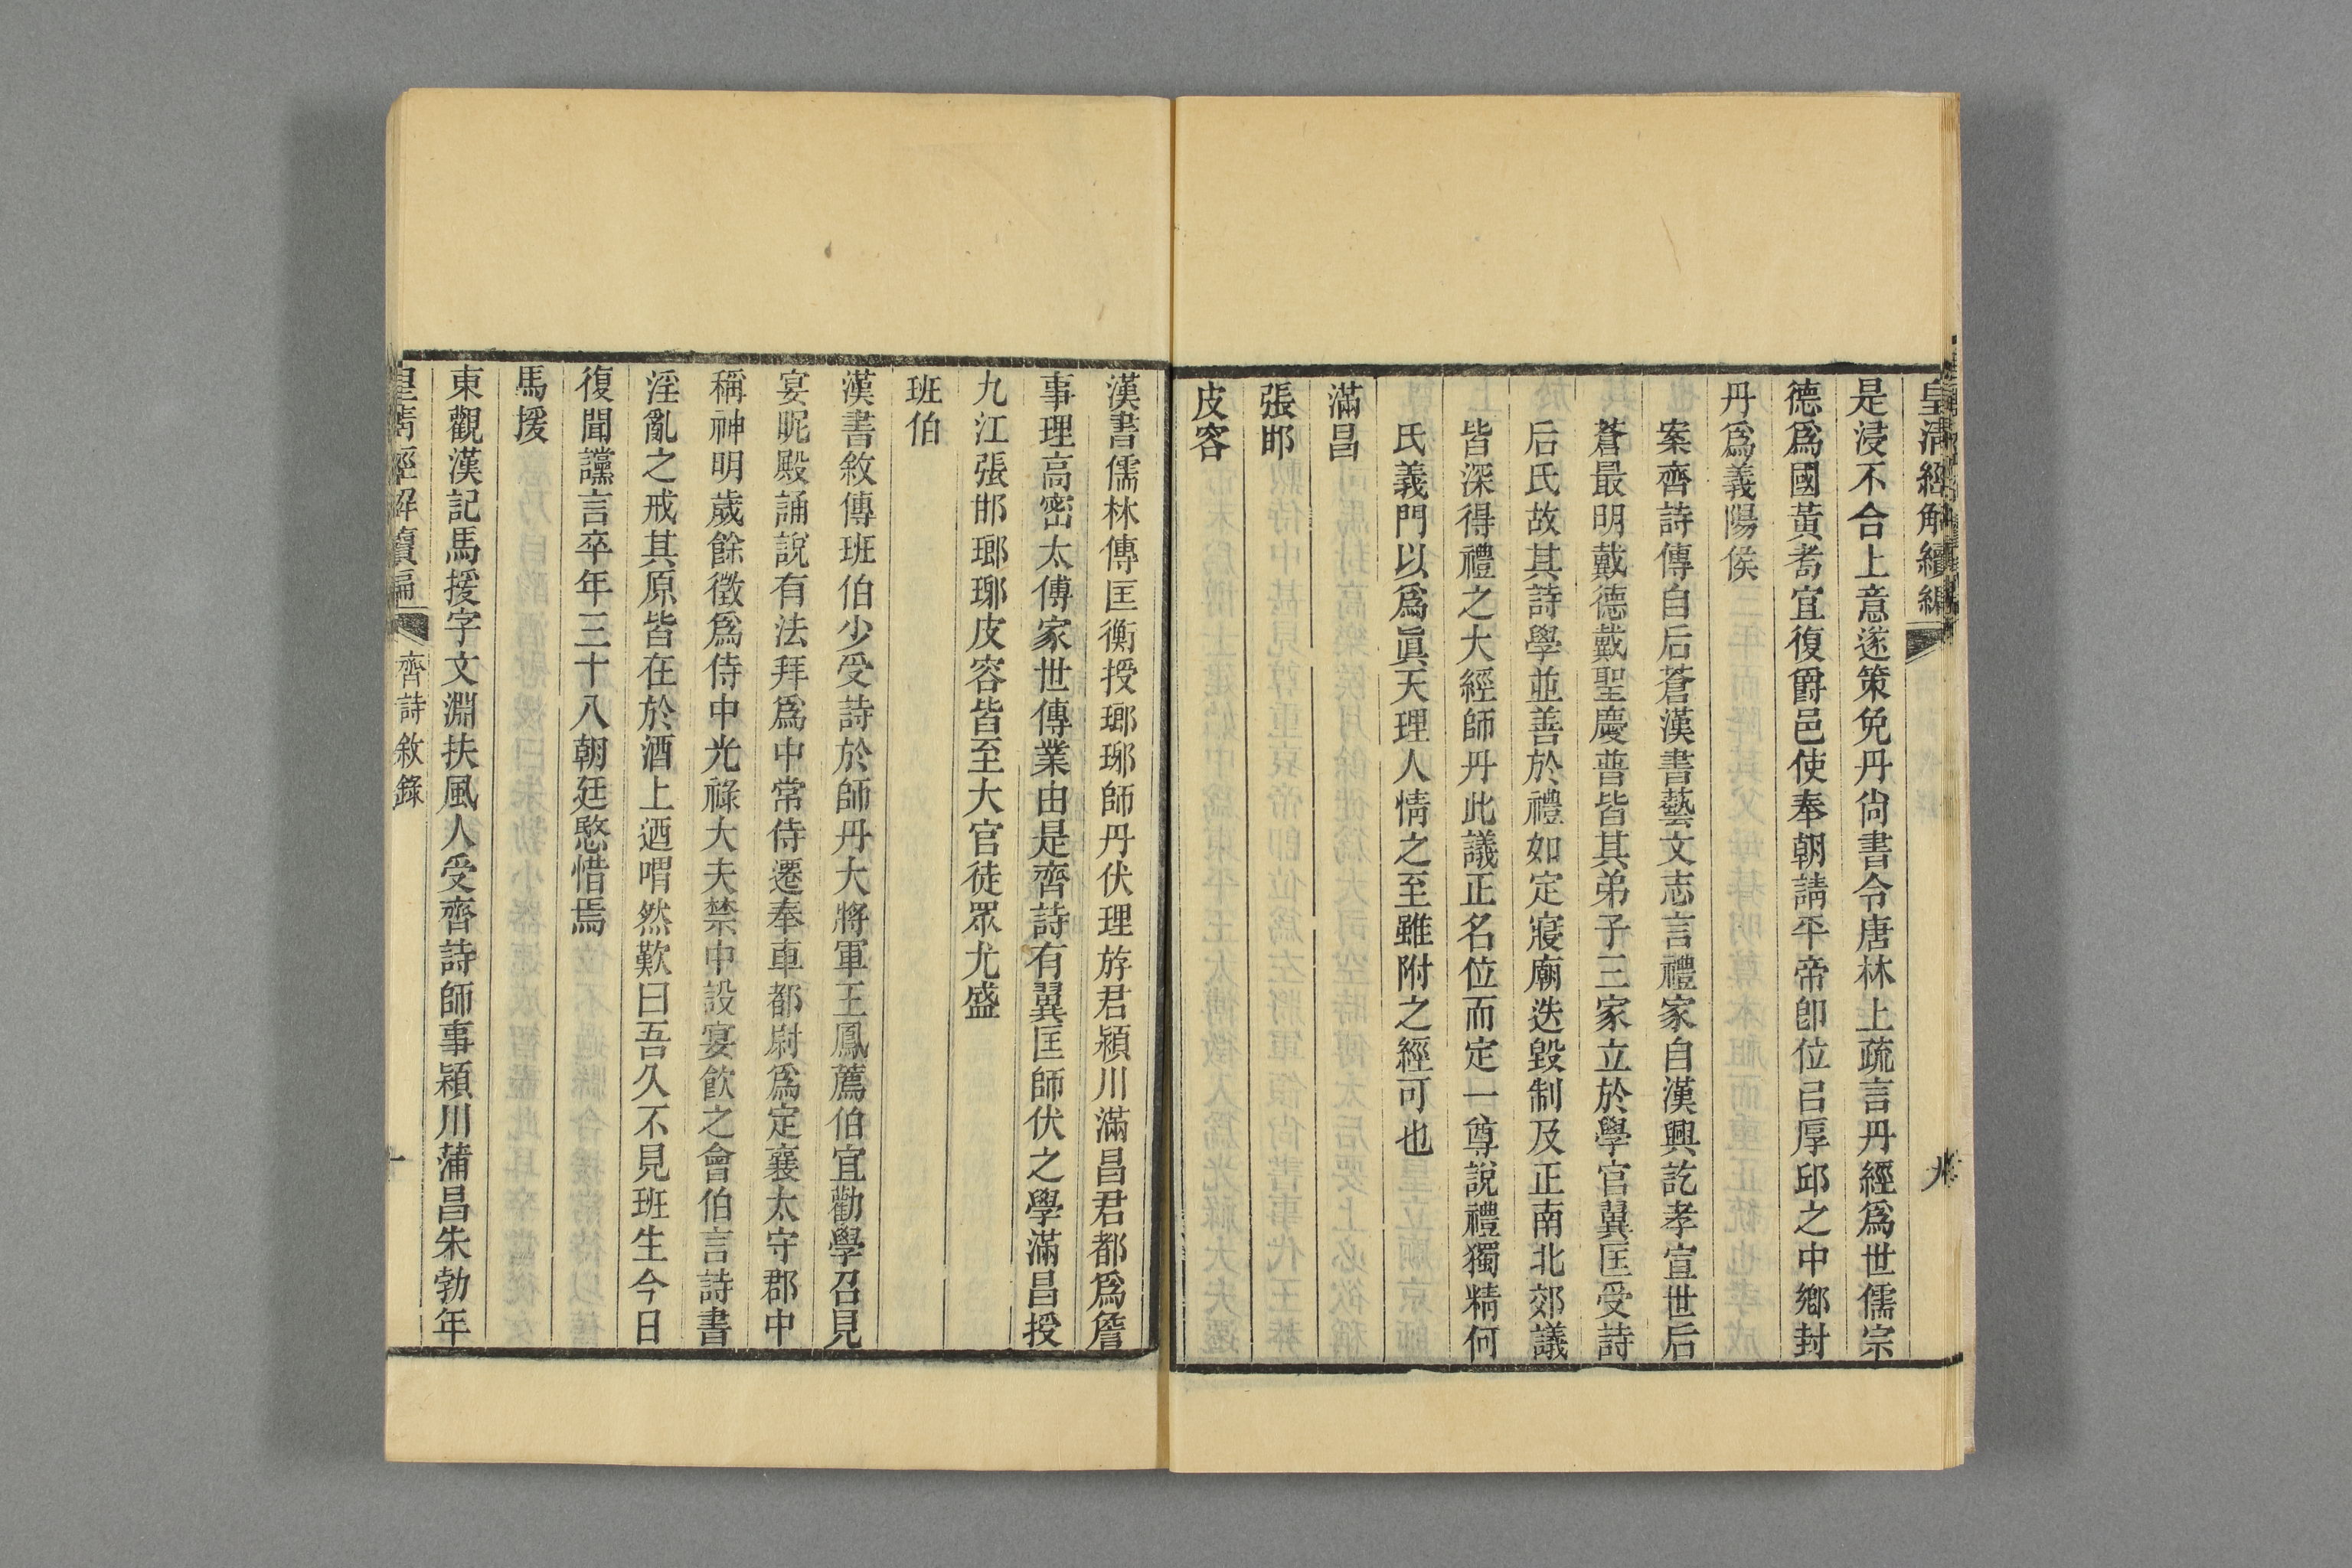 皇清經解續編
九
是浸不合上意遂策免丹尙書令唐林上疏言丹經爲世儒宗
德爲國黃耇宜復爵邑使奉朝請平帝卽位㠯厚邱之中鄉封
丹爲義陽侯
案齊詩傳自后蒼漢書藝文志言禮家自漢興訖孝宣世后
蒼最明戴德戴聖慶普皆其弟子三家立於學官翼匡受詩
后氏故其詩學並善於禮如定寢廟迭毀制及正南北郊議
皆深得禮之大經師丹此議正名位而定一尊說禮獨精何
氏義門以爲眞天理人情之至雖附之經可也
滿昌
張邯
皮容
漢書儒林傳匡衡授瑯琊師丹伏理斿君潁川滿昌君都爲詹
事理高密太傅家世傳業由是齊詩有翼匡師伏之學滿昌授
九江張邯瑯琊皮容皆至大官徒眾尤盛
班伯
漢書敘傳班伯少受詩於師丹大將軍王鳳薦伯宜勸學召見
宴昵殿誦說有法拜爲中常侍遷奉車都尉爲定襄太守郡中
稱神明歲餘徵爲侍中光祿大夫禁中設宴飮之會伯言詩書
淫亂之戒其原皆在於酒上迺喟然歎曰吾久不見班生今日
復聞讜言卒年三十八朝廷愍惜焉
馬援
東觀漢記馬援字文淵扶風人受齊詩師事潁川蒲昌朱勃年
皇淸經解續編
齊詩敘錄